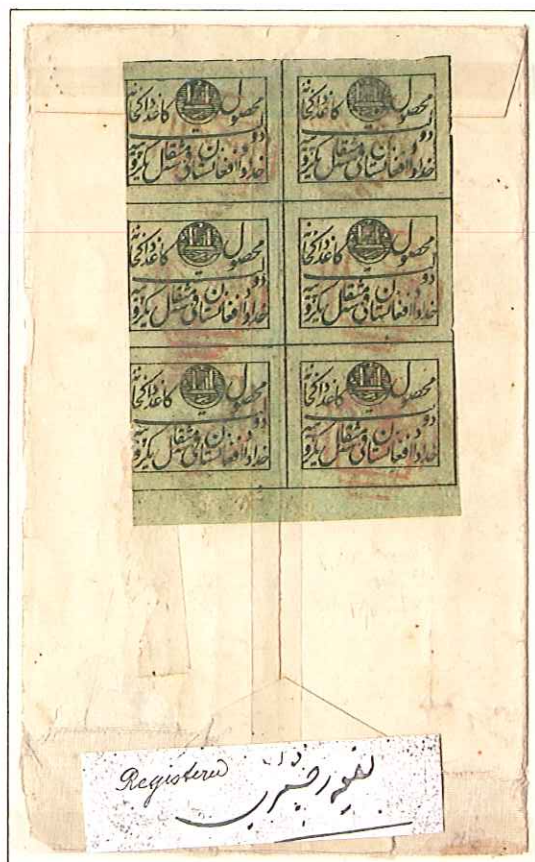 محصول کاغذ داکخانه
دولت
خداداد افغانستان فی مثقال یکروپیه
محصول کاغذ داکخانه
دولت
خداداد افغانستان فی مثقال یکروپیه
محصول کاغذ داکخانه
دولت
خداداد افغانستان فی مثقال یکروپیه
محصول کاغذ داکخانه
دولت
خداداد افغانستان فی مثقال یکروپیه
محصول کاغذ داکخانه
دولت
خداداد افغانستان فی مثقال یکروپیه
محصول کاغذ داکخانه
دولت
خداداد افغانستان فی مثقال یکروپیه
Registered رجستری